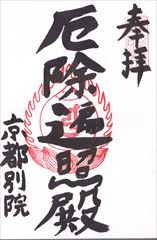 奉拝
厄除遍照殿
京都別院